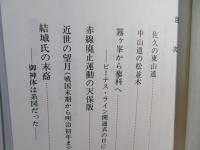 目次
佐久の東山道
中山道の松並木
霧ヶ峯から蓼科へ
――ビーナス・ライン開通式の日に
赤線廃止運動の天保版
近世の望月（戦国末期から明治初年まで
結城氏の末裔
――御神体は系図だった――